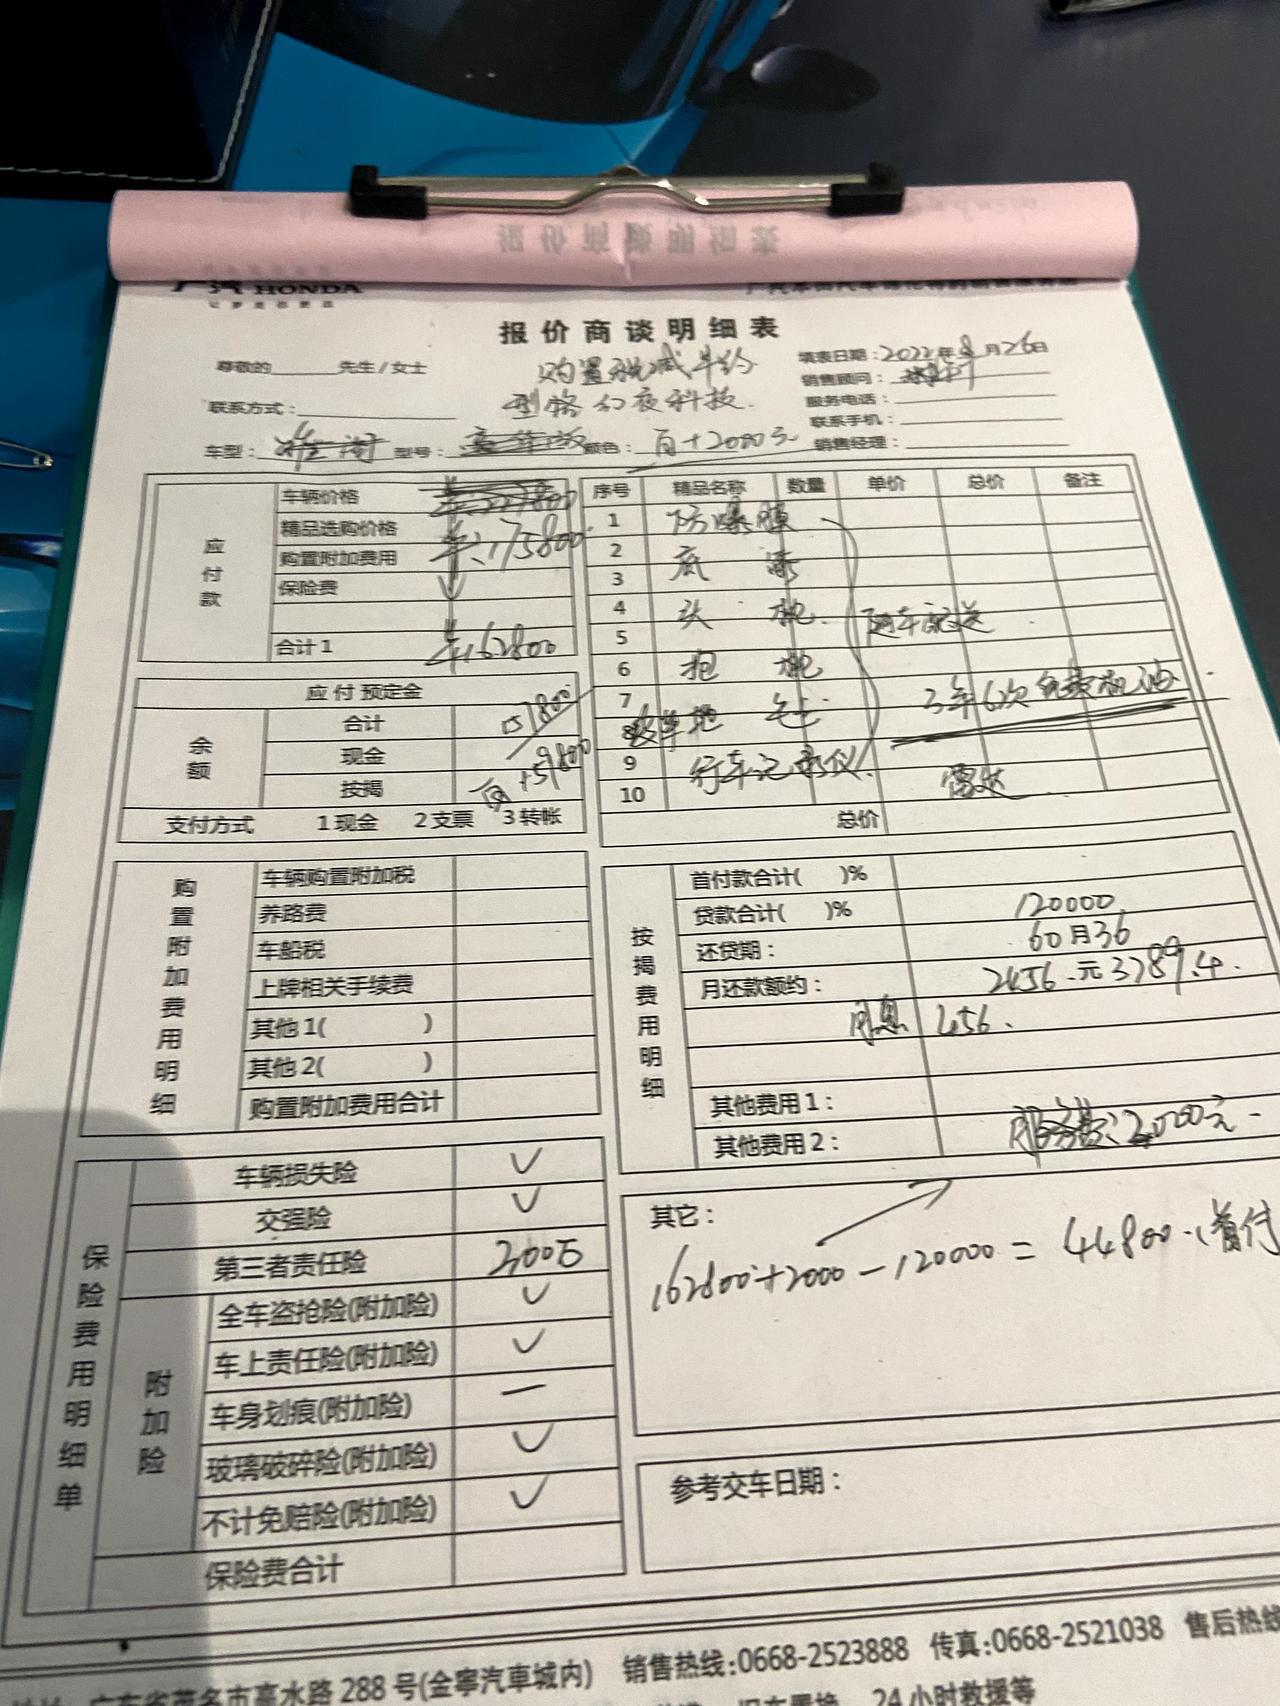 HONDA
报价商谈明细表
尊敬的______先生/女士
购置税减半约
填表日期：2022年8月26日
销售顾问：
型格幻夜科技
服务电话：
联系方式：
联系手机：
车型： 型号： 颜色：白+2000元 销售经理：
应付款
车辆价格
精品选购价格 175800
购置附加费用
保险费
合计1 162800
应付预定金
余额
合计
现金 159800
按揭 白
支付方式 1现金 2支票 3转帐
序号 精品名称 数量 单价 总价 备注
1 防爆膜
2 底漆
3
4 头枕 随车配送
5
6 抱枕
7 3年6次免费机油
8
9 行车记录仪
10 雷达
总价
购置附加费用明细
车辆购置附加税
养路费
车船税
上牌相关手续费
其他1( )
其他2( )
购置附加费用合计
按揭费用明细
首付款合计( )%
贷款合计( )% 120000
还贷期： 60月36
月还款额约： 2456.元3789.4.
月息 456.
其他费用1：
其他费用2： 服务费：2000元
保险费用明细单
车辆损失险 ✓
交强险 ✓
第三者责任险 200万
附加险
全车盗抢险(附加险) ✓
车上责任险(附加险) ✓
车身划痕(附加险) —
玻璃破碎险(附加险) ✓
不计免赔险(附加险) ✓
保险费合计
其它：
162800+2000-120000=44800.(首付
参考交车日期：
广东省茂名市高水路288号(金寧汽車城内) 销售热线:0668-2523888 传真:0668-2521038 售后热线
24小时救援等